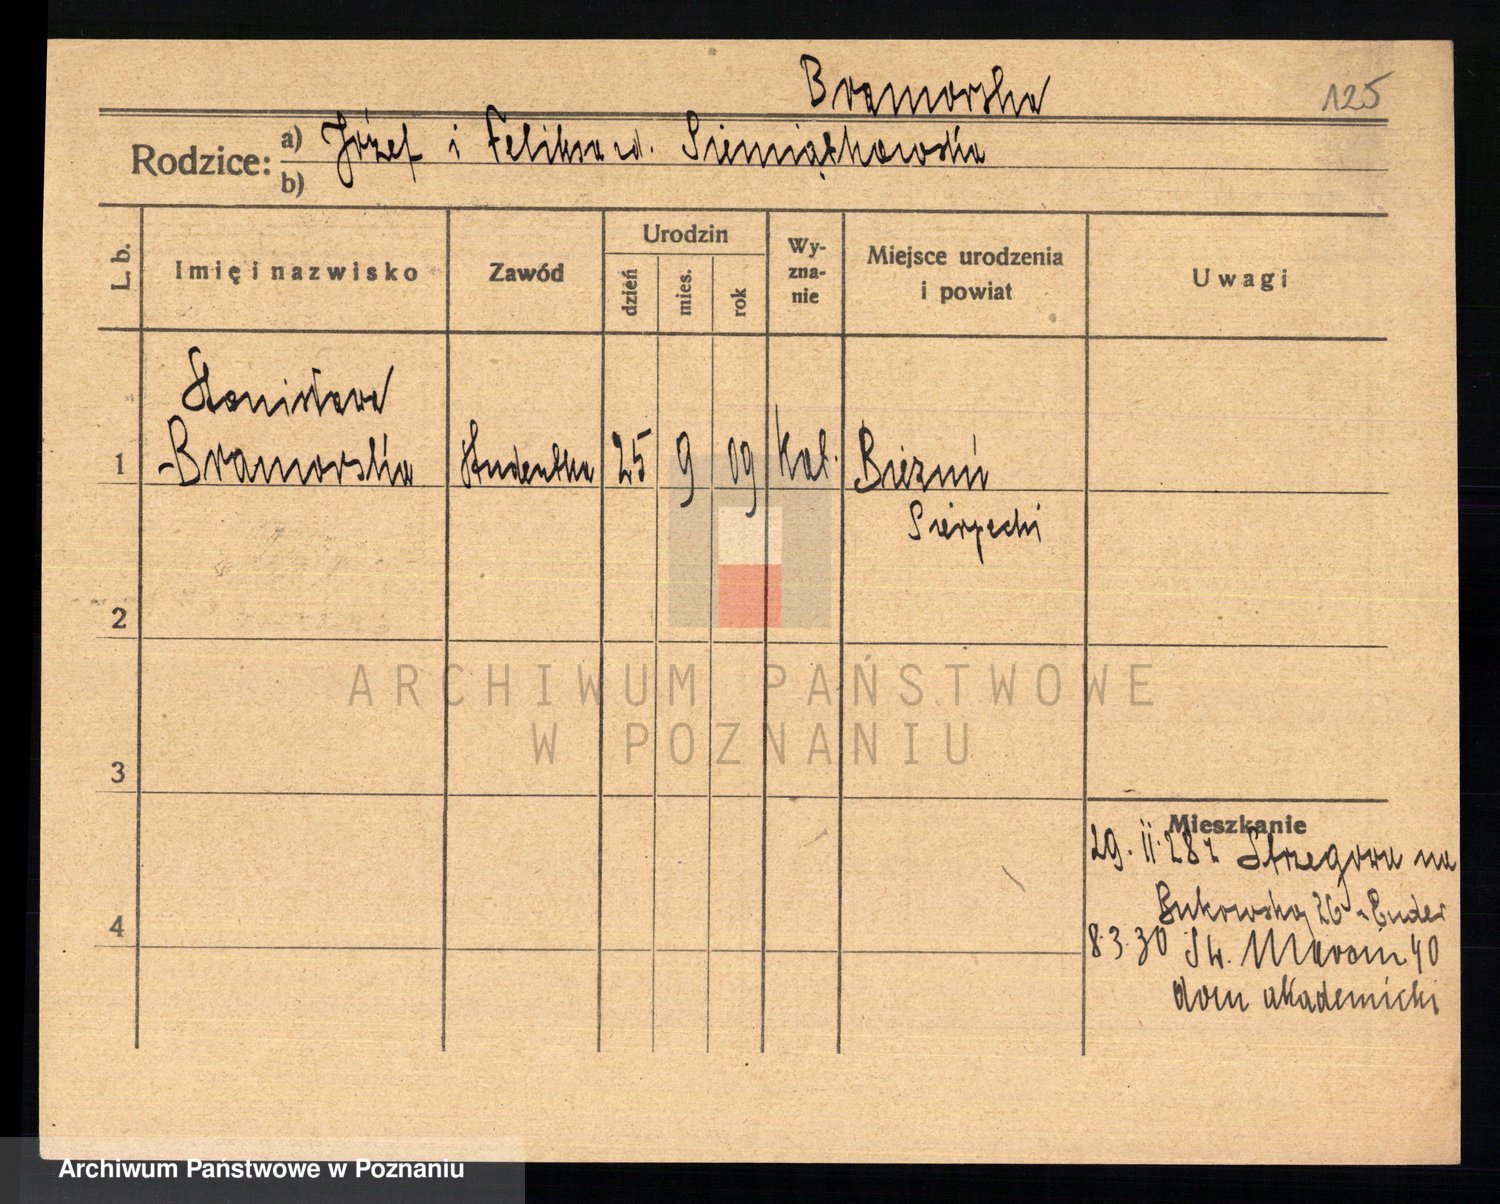 Bramorska
125
Rodzice: a) Józef i Feliksa z d. Siemiątkowska
b)
L. b.
Imię i nazwisko
Zawód
Urodzin
dzień
mies.
rok
Wy-
zna-
nie
Miejsce urodzenia
i powiat
Uwagi
Stanisława
1 Bramorska Studentka 25 9 09 kat. Bieżuń
Sierpecki
2
ARCHIWUM PAŃSTWOWE
W POZNANIU
3
Mieszkanie
29. II. 28 z Strzegowa na
Bukowska 26
8.3.30 Św. Marcin 40
dom akademicki
4
Archiwum Państwowe w Poznaniu